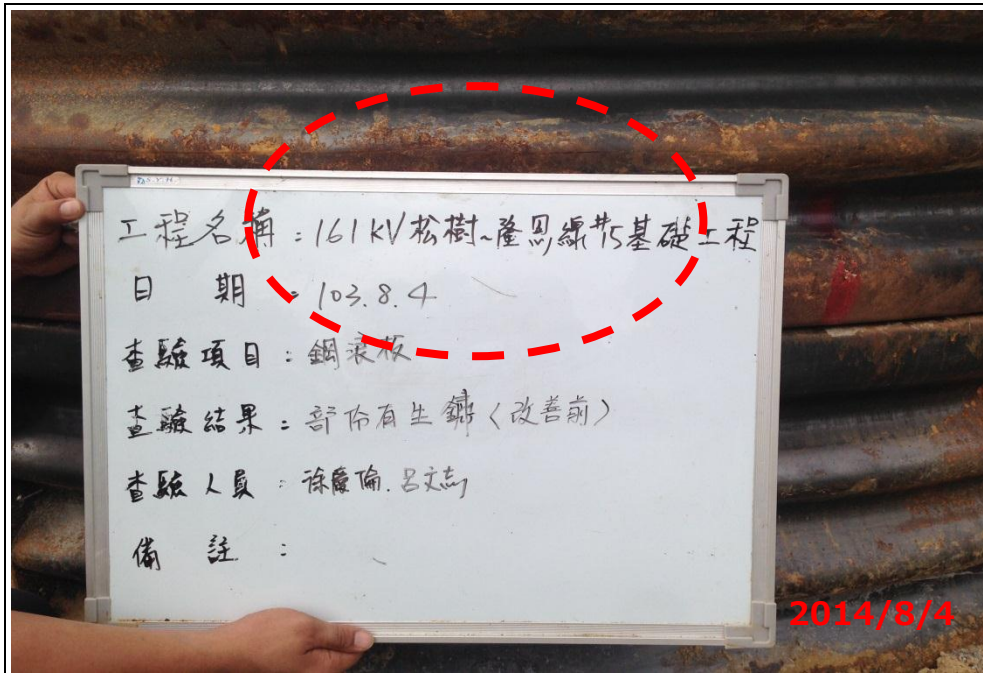 工程名稱：161KV松樹~隆恩線#15基礎工程
日期：103.8.4
查驗項目：鋼浪板
查驗結果：部份有生鏽〈改善前〉
查驗人員：徐慶倫.呂文志
備註：
2014/8/4